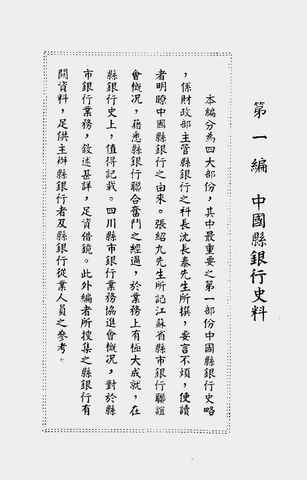 第一編　中國縣銀行史料
本編分為四大部份，其中最重要之第一部份中國縣銀行史略
，係財政部主管縣銀行之科長沈長泰先生所撰，要言不煩，使讀
者明瞭中國縣銀行之由來。張紹九先生所記江蘇省縣市銀行聯誼
會概況，藉悉縣銀行聯合奮鬥之經過，於業務上有極大成就，在
縣銀行史上，值得記載。四川縣市銀行業務協進會概況，對於縣
市銀行業務，敘述甚詳，足資借鏡。此外編者所搜集之縣銀行有
關資料，足供主辦縣銀行者及縣銀行從業人員之參考。